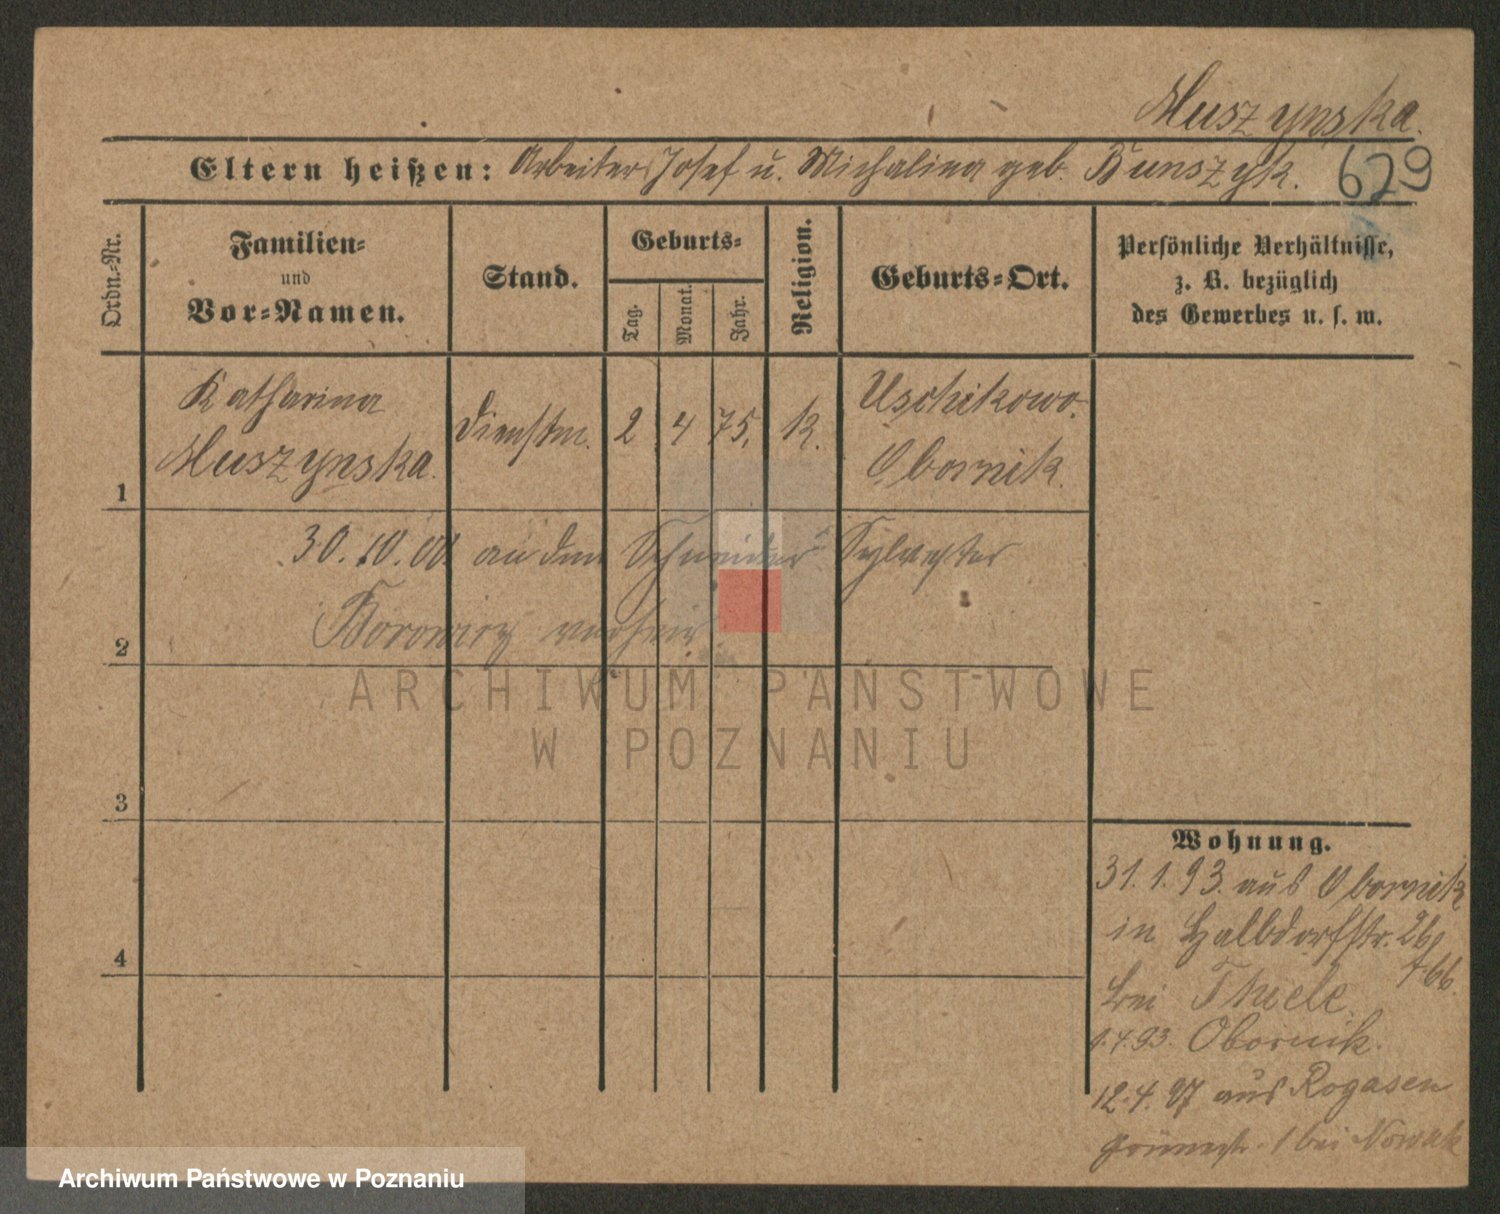 Muszynska.
Eltern heißen: Arbeiter Josef u. Michalina geb. Bunszyk. 629
Ordn.-Nr.
Familien-
und
Vor-Namen.
Stand.
Geburts-
Tag.
Monat.
Jahr.
Religion.
Geburts-Ort.
Persönliche Verhältnisse,
z. B. bezüglich
des Gewerbes u. s. w.
1
Katharina
Muszynska.
Dienstm.
2
4
75.
K.
Uschikowo.
Obornik.
30.10.00 an den Schneider Sylvester
2
Borowicz verheir.
3
4
Wohnung.
31.1.93. aus Obornik
in Halbdorfstr. 26
bei Thiele.
1.4.93. Obornik.
12.4.97 aus Rogasen
1 bei Nowak
ARCHIWUM PAŃSTWOWE
W POZNANIU
Archiwum Państwowe w Poznaniu